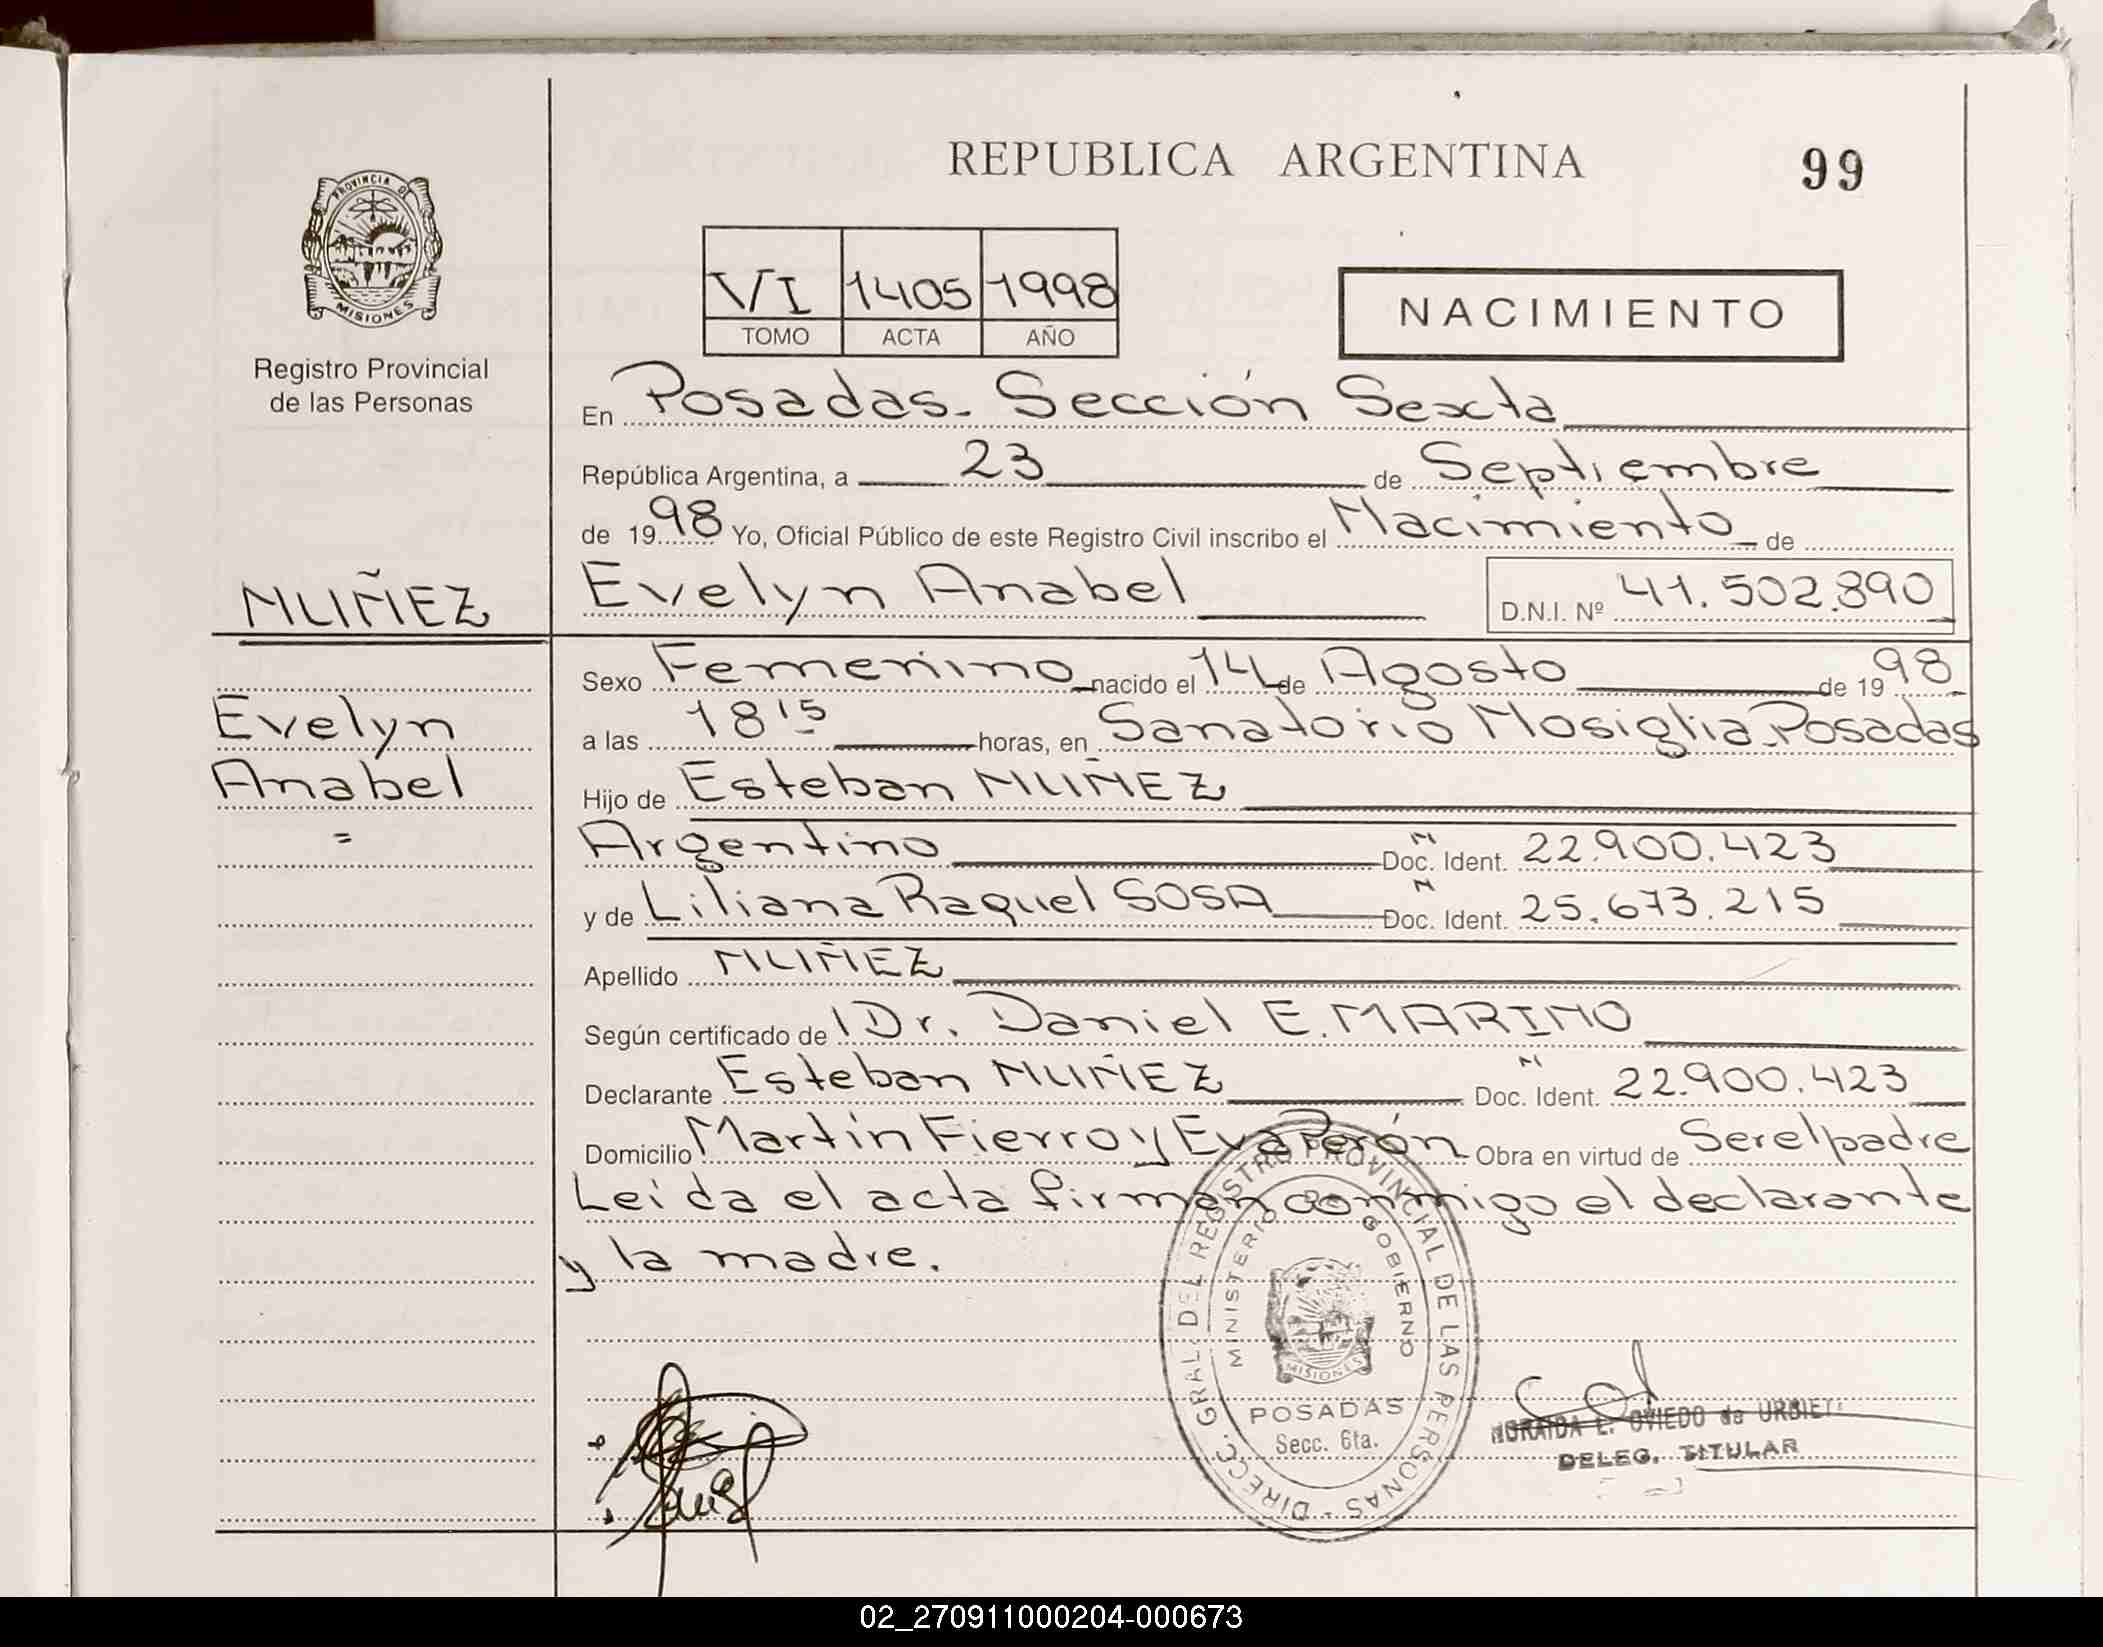 REPUBLICA ARGENTINA
99
PROVINCIA DE
MISIONES
Registro Provincial
de las Personas
VI 1405 1998
TOMO ACTA AÑO
NACIMIENTO
En Posadas - Sección Sexta
República Argentina, a 23 de Septiembre
de 1998 Yo, Oficial Público de este Registro Civil inscribo el Nacimiento de
NUÑEZ
Evelyn Anabel D.N.I. Nº 41.502.890
Evelyn
Anabel
=
Sexo Femenino nacido el 14 de Agosto de 1998
a las 18 15 horas, en Sanatorio Nosiglia - Posadas
Hijo de Esteban NUÑEZ
Argentino Doc. N Ident. 22.900.423
y de Liliana Raquel SOSA Doc. N Ident. 25.673.215
Apellido NUÑEZ
Según certificado de Dr. Daniel E. MARINO
Declarante Esteban NUÑEZ Doc. N Ident. 22.900.423
Domicilio Martín Fierro y Eva Perón Obra en virtud de Ser el padre
Leída el acta firman conmigo el declarante
y la madre.
DIRECC. GRAL. DEL REGISTRO PROVINCIAL DE LAS PERSONAS -
MINISTERIO DE GOBIERNO
MISIONES
POSADAS
Secc. 6ta.
L. OVIEDO de
DELEG. TITULAR
02_270911000204-000673